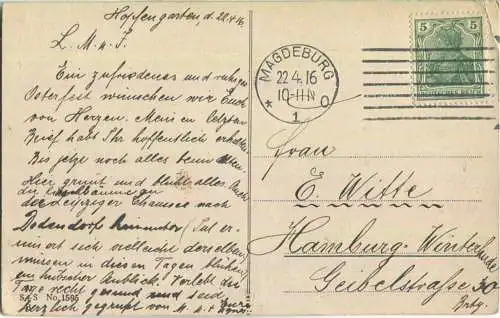 Hopfengarten, d. 22.4.16
L. M. u. P.
Ein zufriedenes und ruhiges
Osterfest wünschen wir Euch
von Herzen. Meinen letzten
Brief habt Ihr hoffentlich erhalten.
Bis jetzt noch alles beim Alten.
Hier grünt und blüht alles. Auch
die
der Leipziger Chaussee nach
Dodendorf
sich vielleicht derselben,
müssen in diesen Tagen blühen,
ein hübscher Anblick. Verlebt die
Tage recht gesund und seid
herzlich gegrüßt von M. u.
S & S No. 1595
MAGDEBURG
22.4.16
10-11 N
* 1 O
5 5
DEUTSCHES REICH
Frau
E. Witte
Hamburg-Winterhude
Geibelstraße 30